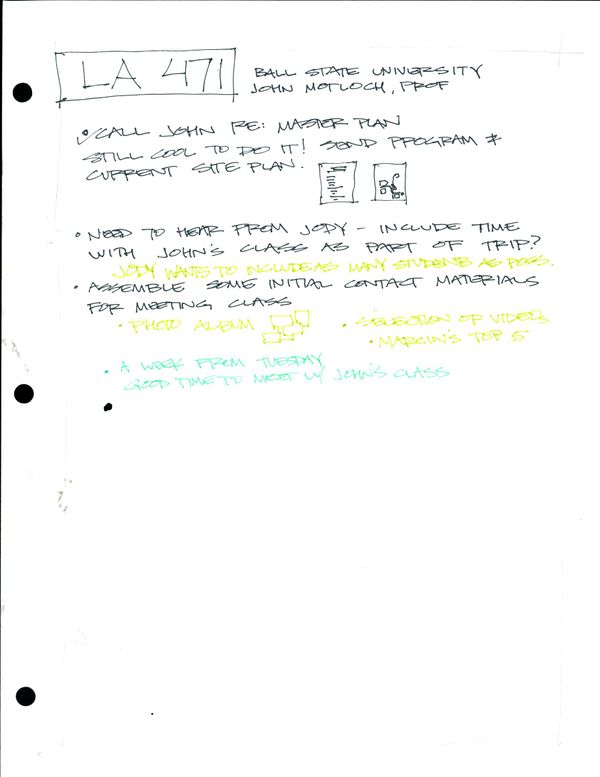 LA 471
BALL STATE UNIVERSITY
JOHN MOTLOCH, PROF
CALL JOHN RE: MASTER PLAN
STILL COOL TO DO IT! SEND PROGRAM &
CURRENT SITE PLAN.
• NEED TO HEAR FROM JODY – INCLUDE TIME
WITH JOHN'S CLASS AS PART OF TRIP?
JODY WANTS TO INCLUDE AS MANY STUDENTS AS POSS.
• ASSEMBLE SOME INITIAL CONTACT MATERIALS
FOR MEETING CLASS
• PHOTO ALBUM
• SELECTION OF VIDEOS
• MARCIN'S TOP 5
• A WEEK FROM TUESDAY
GOOD TIME TO MEET W/ JOHN'S CLASS